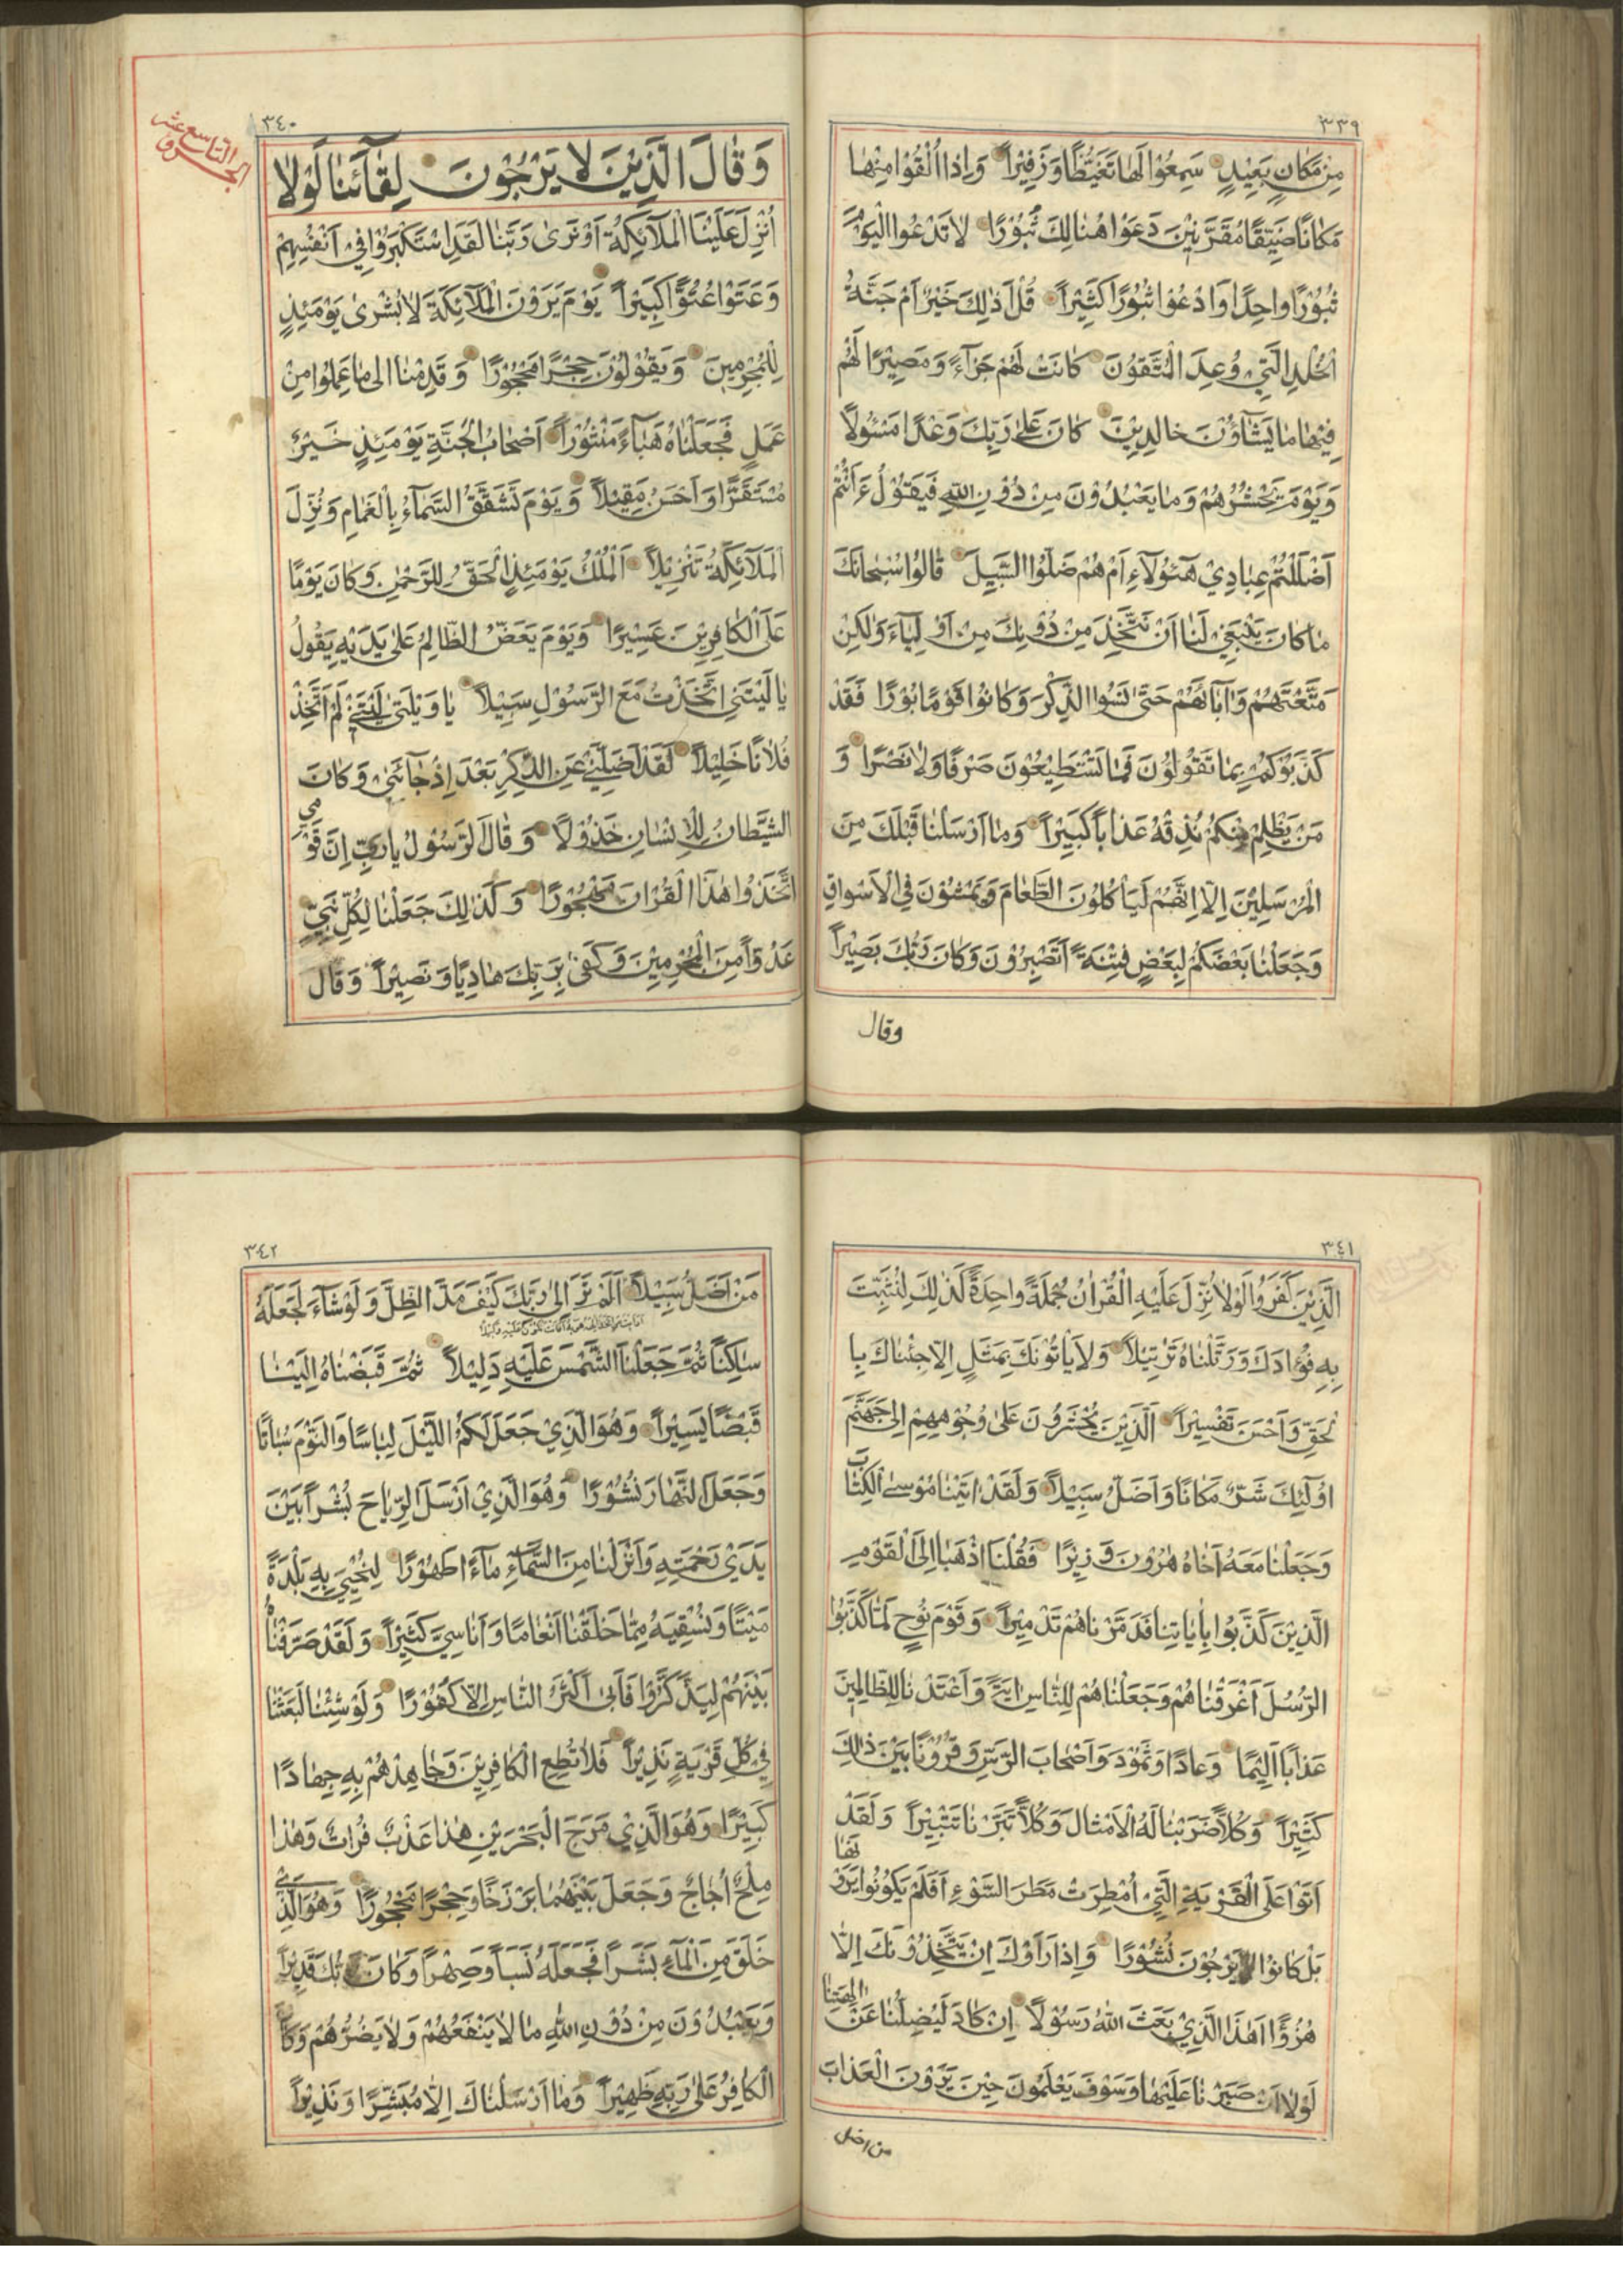 ٣٣٩
مِنْ مَكَانٍ بَعِيْدٍ سَمِعُوْا لَهَا تَغَيُّظًا وَزَفِيْرًا وَاِذَا اُلْقُوْا مِنْهَا
مَكَانًا ضَيِّقًا مُقَرَّنِيْنَ دَعَوْا هُنَالِكَ ثُبُوْرًا لَا تَدْعُوا الْيَوْمَ
ثُبُوْرًا وَاحِدًا وَادْعُوْا ثُبُوْرًا كَثِيْرًا قُلْ اَذٰلِكَ خَيْرٌ اَمْ جَنَّةُ
الْخُلْدِ الَّتِيْ وُعِدَ الْمُتَّقُوْنَ كَانَتْ لَهُمْ جَزَآءً وَمَصِيْرًا لَهُمْ
فِيْهَا مَا يَشَآؤُنَ خَالِدِيْنَ كَانَ عَلٰى رَبِّكَ وَعْدًا مَسْئُوْلًا
وَيَوْمَ يَحْشُرُهُمْ وَمَا يَعْبُدُوْنَ مِنْ دُوْنِ اللّٰهِ فَيَقُوْلُ ءَاَنْتُمْ
اَضْلَلْتُمْ عِبَادِيْ هٰٓئُولَآءِ اَمْ هُمْ ضَلُّوا السَّبِيْلَ قَالُوْا سُبْحَانَكَ
مَا كَانَ يَنْبَغِيْ لَنَا اَنْ نَتَّخِذَ مِنْ دُوْنِكَ مِنْ اَوْلِيَآءَ وَلٰكِنْ
مَتَّعْتَهُمْ وَاٰبَآئَهُمْ حَتّٰى نَسُوا الذِّكْرَ وَكَانُوْا قَوْمًا بُوْرًا فَقَدْ
كَذَّبُوْكُمْ بِمَا تَقُوْلُوْنَ فَمَا تَسْتَطِيْعُوْنَ صَرْفًا وَلَا نَصْرًا وَ
مَنْ يَظْلِمْ مِنْكُمْ نُذِقْهُ عَذَابًا كَبِيْرًا وَمَا اَرْسَلْنَا قَبْلَكَ مِنَ
الْمُرْسَلِيْنَ اِلَّا اِنَّهُمْ لَيَأْكُلُوْنَ الطَّعَامَ وَيَمْشُوْنَ فِي الْاَسْوَاقِ
وَجَعَلْنَا بَعْضَكُمْ لِبَعْضٍ فِتْنَةً اَتَصْبِرُوْنَ وَكَانَ رَبُّكَ بَصِيْرًا
وقال
٣٤٠
الجزؤ التاسع عشر
وَقَالَ الَّذِيْنَ لَا يَرْجُوْنَ لِقَآئَنَا لَوْلَا
اُنْزِلَ عَلَيْنَا الْمَلَآئِكَةُ اَوْ نَرٰى رَبَّنَا لَقَدِ اسْتَكْبَرُوْا فِيْ اَنْفُسِهِمْ
وَعَتَوْا عُتُوًّا كَبِيْرًا يَوْمَ يَرَوْنَ الْمَلَآئِكَةَ لَا بُشْرٰى يَوْمَئِذٍ
لِلْمُجْرِمِيْنَ وَيَقُوْلُوْنَ حِجْرًا مَحْجُوْرًا وَقَدِمْنَا اِلٰى مَا عَمِلُوْا مِنْ
عَمَلٍ فَجَعَلْنَاهُ هَبَآءً مَنْثُوْرًا اَصْحَابُ الْجَنَّةِ يَوْمَئِذٍ خَيْرٌ
مُسْتَقَرًّا وَاَحْسَنُ مَقِيْلًا وَيَوْمَ تَشَقَّقُ السَّمَآءُ بِالْغَمَامِ وَنُزِّلَ
الْمَلَآئِكَةُ تَنْزِيْلًا اَلْمُلْكُ يَوْمَئِذٍ الْحَقُّ لِلرَّحْمٰنِ وَكَانَ يَوْمًا
عَلَى الْكَافِرِيْنَ عَسِيْرًا وَيَوْمَ يَعَضُّ الظَّالِمُ عَلٰى يَدَيْهِ يَقُوْلُ
يَا لَيْتَنِي اتَّخَذْتُ مَعَ الرَّسُوْلِ سَبِيْلًا يَا وَيْلَتٰى لَيْتَنِيْ لَمْ اَتَّخِذْ
فُلَانًا خَلِيْلًا لَقَدْ اَضَلَّنِيْ عَنِ الذِّكْرِ بَعْدَ اِذْ جَآئَنِيْ وَكَانَ
الشَّيْطَانُ لِلْاِنْسَانِ خَذُوْلًا وَقَالَ الرَّسُوْلُ يَا رَبِّ اِنَّ قَوْمِي
اتَّخَذُوْا هٰذَا الْقُرْاٰنَ مَهْجُوْرًا وَكَذٰلِكَ جَعَلْنَا لِكُلِّ نَبِيٍّ
عَدُوًّا مِنَ الْمُجْرِمِيْنَ وَكَفٰى بِرَبِّكَ هَادِيًا وَنَصِيْرًا وَقَالَ
٣٤١
الَّذِيْنَ كَفَرُوْا لَوْلَا نُزِّلَ عَلَيْهِ الْقُرْاٰنُ جُمْلَةً وَاحِدَةً كَذٰلِكَ لِنُثَبِّتَ
بِهِ فُؤَادَكَ وَرَتَّلْنَاهُ تَرْتِيْلًا وَلَا يَأْتُوْنَكَ بِمَثَلٍ اِلَّا جِئْنَاكَ بِا
لْحَقِّ وَاَحْسَنَ تَفْسِيْرًا اَلَّذِيْنَ يُحْشَرُوْنَ عَلٰى وُجُوْهِهِمْ اِلٰى جَهَنَّمَ
اُولٰٓئِكَ شَرٌّ مَكَانًا وَاَضَلُّ سَبِيْلًا وَلَقَدْ اٰتَيْنَا مُوْسَى الْكِتَابَ
وَجَعَلْنَا مَعَهُ اَخَاهُ هٰرُوْنَ وَزِيْرًا فَقُلْنَا اذْهَبَا اِلَى الْقَوْمِ
الَّذِيْنَ كَذَّبُوْا بِاٰيَاتِنَا فَدَمَّرْنَاهُمْ تَدْمِيْرًا وَقَوْمَ نُوْحٍ لَمَّا كَذَّبُوا
الرُّسُلَ اَغْرَقْنَاهُمْ وَجَعَلْنَاهُمْ لِلنَّاسِ اٰيَةً وَاَعْتَدْنَا لِلظَّالِمِيْنَ
عَذَابًا اَلِيْمًا وَعَادًا وَثَمُوْدَ وَاَصْحَابَ الرَّسِّ وَقُرُوْنًا بَيْنَ ذٰلِكَ
كَثِيْرًا وَكُلًّا ضَرَبْنَا لَهُ الْاَمْثَالَ وَكُلًّا تَبَّرْنَا تَتْبِيْرًا وَلَقَدْ
اَتَوْا عَلَى الْقَرْيَةِ الَّتِيْ اُمْطِرَتْ مَطَرَ السَّوْءِ اَفَلَمْ يَكُوْنُوْا يَرَوْنَهَا
بَلْ كَانُوْا لَا يَرْجُوْنَ نُشُوْرًا وَاِذَا رَاَوْكَ اِنْ يَتَّخِذُوْنَكَ اِلَّا
هُزُوًا اَهٰذَا الَّذِيْ بَعَثَ اللّٰهُ رَسُوْلًا اِنْ كَادَ لَيُضِلُّنَا عَنْ اٰلِهَتِنَا
لَوْلَا اَنْ صَبَرْنَا عَلَيْهَا وَسَوْفَ يَعْلَمُوْنَ حِيْنَ يَرَوْنَ الْعَذَابَ
من اضل
٣٤٢
مَنْ اَضَلُّ سَبِيْلًا اَلَمْ تَرَ اِلٰى رَبِّكَ كَيْفَ مَدَّ الظِّلَّ وَلَوْ شَآءَ لَجَعَلَهُ
سَاكِنًا ثُمَّ جَعَلْنَا الشَّمْسَ عَلَيْهِ دَلِيْلًا ثُمَّ قَبَضْنَاهُ اِلَيْنَا
قَبْضًا يَسِيْرًا وَهُوَ الَّذِيْ جَعَلَ لَكُمُ اللَّيْلَ لِبَاسًا وَالنَّوْمَ سُبَاتًا
وَجَعَلَ النَّهَارَ نُشُوْرًا وَهُوَ الَّذِيْ اَرْسَلَ الرِّيَاحَ بُشْرًا بَيْنَ
يَدَيْ رَحْمَتِهِ وَاَنْزَلْنَا مِنَ السَّمَآءِ مَآءً طَهُوْرًا لِنُحْيِيَ بِهِ بَلْدَةً
مَيْتًا وَنُسْقِيَهُ مِمَّا خَلَقْنَا اَنْعَامًا وَاَنَاسِيَّ كَثِيْرًا وَلَقَدْ صَرَّفْنَاهُ
بَيْنَهُمْ لِيَذَّكَّرُوْا فَاَبٰى اَكْثَرُ النَّاسِ اِلَّا كُفُوْرًا وَلَوْ شِئْنَا لَبَعَثْنَا
فِيْ كُلِّ قَرْيَةٍ نَذِيْرًا فَلَا تُطِعِ الْكَافِرِيْنَ وَجَاهِدْهُمْ بِهِ جِهَادًا
كَبِيْرًا وَهُوَ الَّذِيْ مَرَجَ الْبَحْرَيْنِ هٰذَا عَذْبٌ فُرَاتٌ وَهٰذَا
مِلْحٌ اُجَاجٌ وَجَعَلَ بَيْنَهُمَا بَرْزَخًا وَحِجْرًا مَحْجُوْرًا وَهُوَ الَّذِيْ
خَلَقَ مِنَ الْمَآءِ بَشَرًا فَجَعَلَهُ نَسَبًا وَصِهْرًا وَكَانَ رَبُّكَ قَدِيْرًا
وَيَعْبُدُوْنَ مِنْ دُوْنِ اللّٰهِ مَا لَا يَنْفَعُهُمْ وَلَا يَضُرُّهُمْ وَكَانَ
الْكَافِرُ عَلٰى رَبِّهِ ظَهِيْرًا وَمَا اَرْسَلْنَاكَ اِلَّا مُبَشِّرًا وَنَذِيْرًا